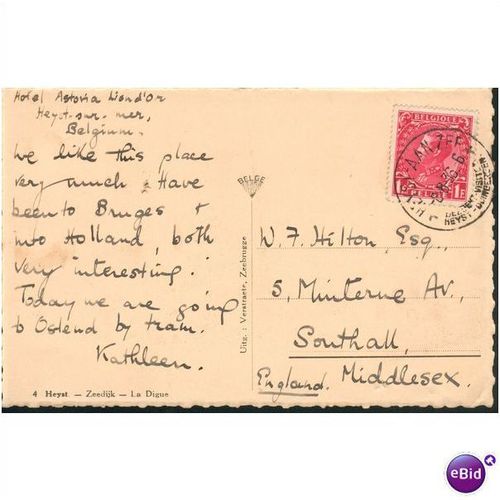 Hotel Astoria Liond'Or
Heyst-sur-mer,
Belgium.
We like this place
very much. Have
been to Bruges +
into Holland, both
very interesting.
Today we are going
to Ostend by tram.
Kathleen.
4 Heyst. — Zeedijk — La Digue
BELGE
Uitg.: Verstraete, Zeebrugge
BELGIQUE
1F
BELGIE
AAN ZEE
HEYST
W. F. Hilton, Esq.,
5, Minterne Av.,
Southall,
Middlesex.
England.
eBid